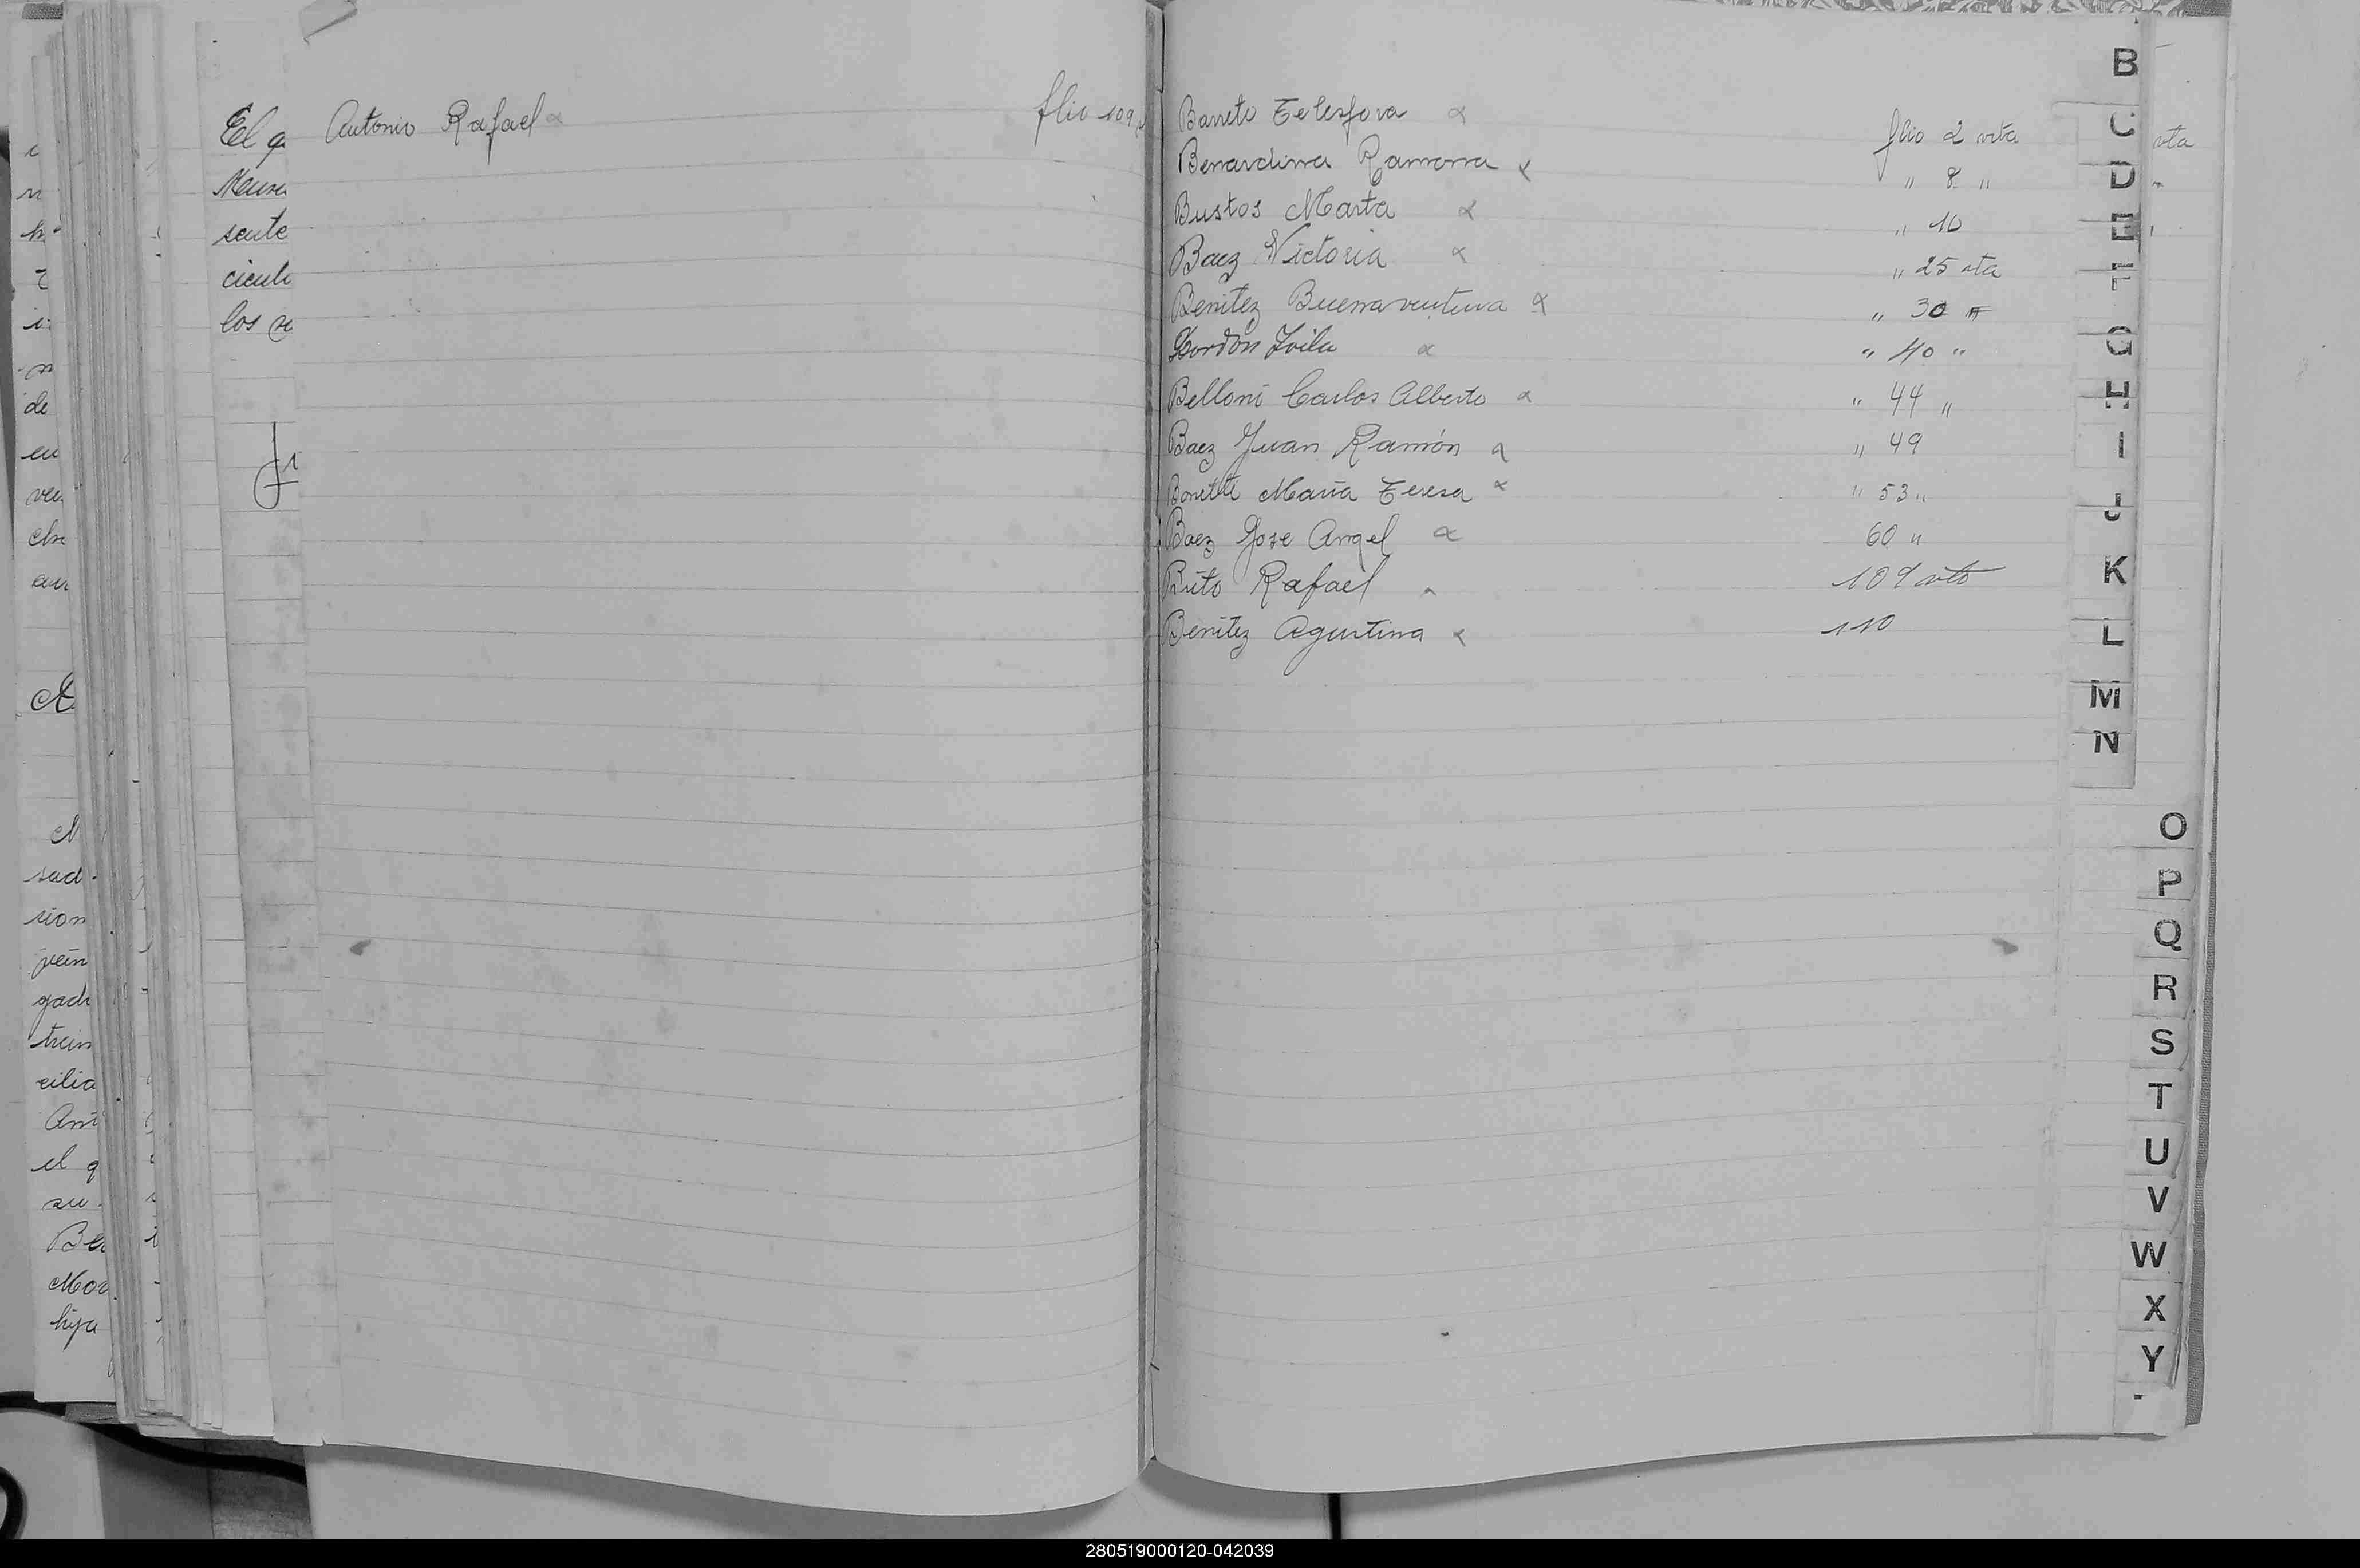 Antonio Rafael flio 109
Barreto Telesfora flio 2 vta
Benardina Ramona " 8 "
Bustos Marta " 10
Baez Victoria " 25 vta
Benitez Buenaventura " 30 "
Bordon Zoila " 40 "
Belloni Carlos Alberto " 44 "
Baez Juan Ramón " 49
Bonetti Maria Teresa " 53 "
Baez Jose Angel 60 "
Brito Rafael 109 vto
Benitez Agustina 110
El q
sente
los
de
en
sion
el q
su
hija
vta
B
C
D
E
F
G
H
I
J
K
L
M
N
O
P
Q
R
S
T
U
V
W
X
Y
280519000120-042039